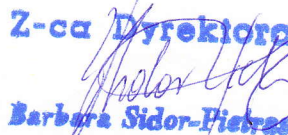 Z-ca Dyrektora
Barbara Sidor-Pietras